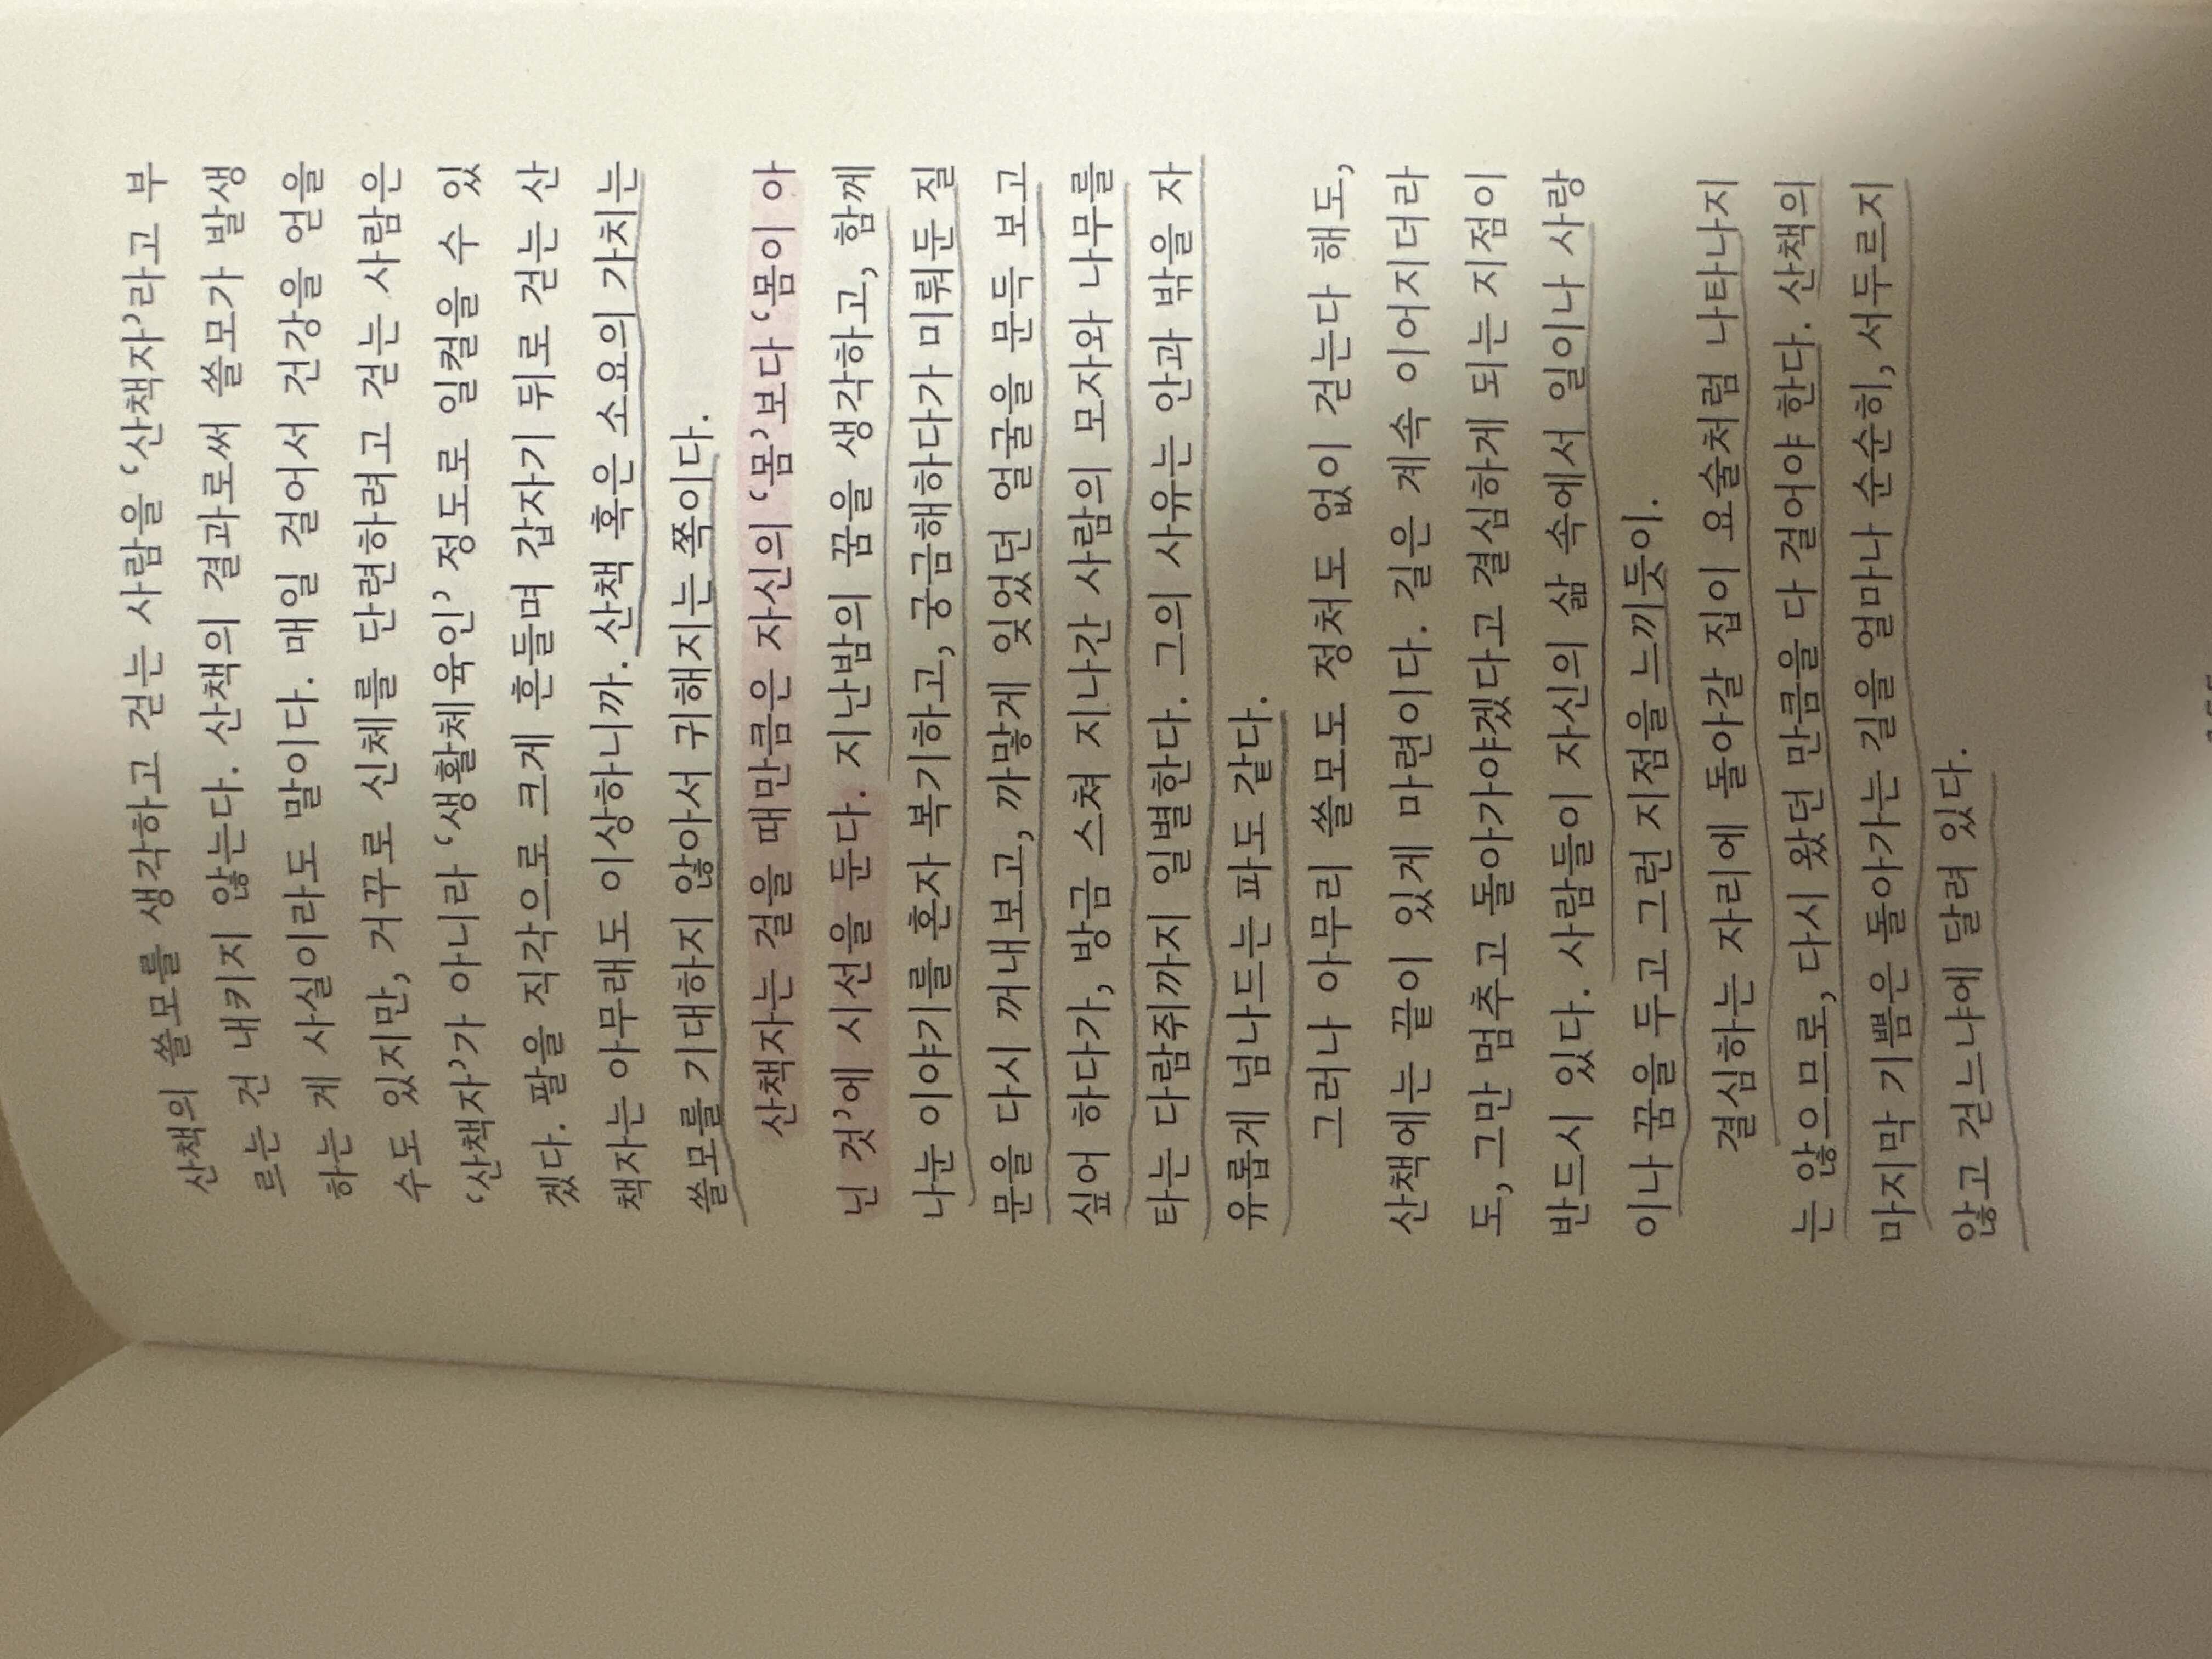 산책의 쓸모를 생각하고 걷는 사람을 ‘산책자’라고 부
르는 건 내키지 않는다. 산책의 결과로써 쓸모가 발생
하는 게 사실이라도 말이다. 매일 걸어서 건강을 얻을
수도 있지만, 거꾸로 신체를 단련하려고 걷는 사람은
‘산책자’가 아니라 ‘생활체육인’ 정도로 일컬을 수 있
겠다. 팔을 직각으로 크게 흔들며 갑자기 뒤로 걷는 산
책자는 아무래도 이상하니까. 산책 혹은 소요의 가치는
쓸모를 기대하지 않아서 귀해지는 쪽이다.
산책자는 걸을 때만큼은 자신의 ‘몸’보다 ‘몸이 아
닌 것’에 시선을 둔다. 지난밤의 꿈을 생각하고, 함께
나눈 이야기를 혼자 복기하고, 궁금해하다가 미뤄둔 질
문을 다시 꺼내보고, 까맣게 잊었던 얼굴을 문득 보고
싶어 하다가, 방금 스쳐 지나간 사람의 모자와 나무를
타는 다람쥐까지 일별한다. 그의 사유는 안과 밖을 자
유롭게 넘나드는 파도 같다.
그러나 아무리 쓸모도 정처도 없이 걷는다 해도,
산책에는 끝이 있게 마련이다. 길은 계속 이어지더라
도, 그만 멈추고 돌아가야겠다고 결심하게 되는 지점이
반드시 있다. 사람들이 자신의 삶 속에서 일이나 사랑
이나 꿈을 두고 그런 지점을 느끼듯이.
결심하는 자리에 돌아갈 집이 요술처럼 나타나지
는 않으므로, 다시 왔던 만큼을 다 걸어야 한다. 산책의
마지막 기쁨은 돌아가는 길을 얼마나 순순히, 서두르지
않고 걷느냐에 달려 있다.